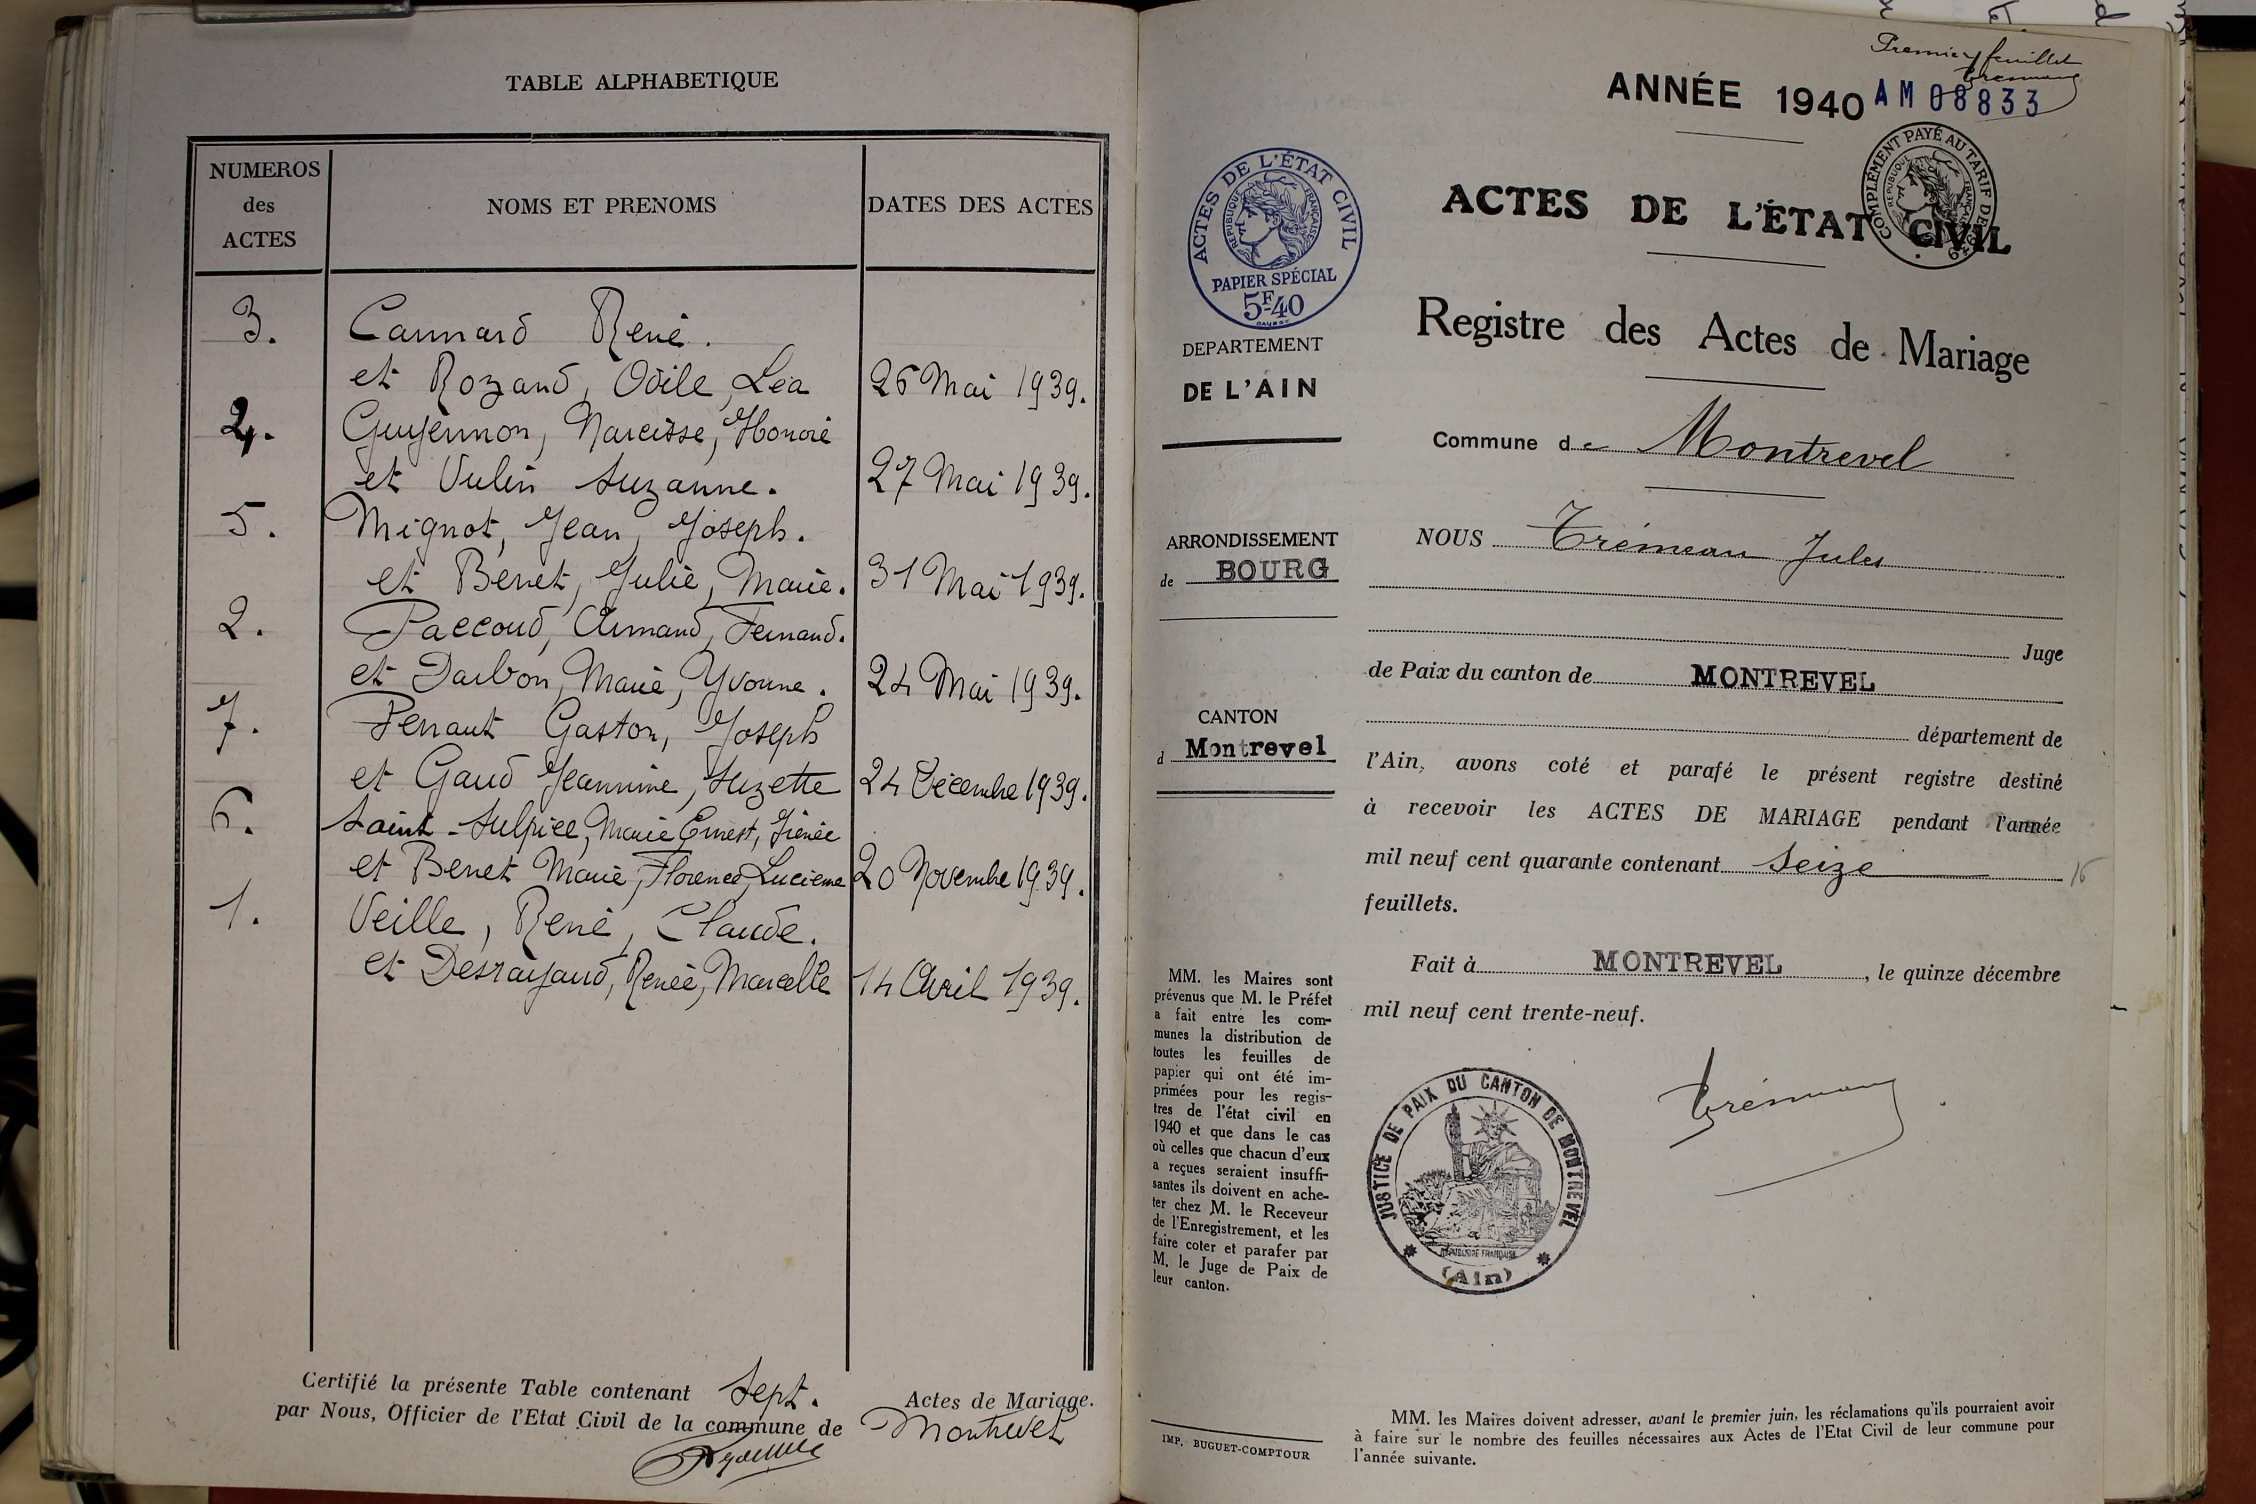 TABLE ALPHABETIQUE
NUMEROS
des
ACTES
NOMS ET PRENOMS
DATES DES ACTES
3. Cannard René.
et Rozand, Odile, Léa 26 Mai 1939.
4. Guyennon, Narcisse, Honoré
et Vulin Suzanne. 27 Mai 1939.
5. Mignot, Jean, Joseph.
et Benet, Julie, Marie. 31 Mai 1939.
2. Paccoud, Armand, Fernand.
et Darbon, Marie, Yvonne. 24 Mai 1939.
7. Perraut Gaston, Joseph
et Gaud Jeannine, Suzette 24 Décembre 1939.
6. Saint-Sulpice, Marie Ernest, Irénée
et Benet Marie, Florence, Lucienne 20 Novembre 1939.
1. Veille, René, Claude.
et Desrayaud, Renée, Marcelle 14 Avril 1939.
Certifié la présente Table contenant Sept. Actes de Mariage.
par Nous, Officier de l'Etat Civil de la commune de Montrevel
Premier feuillet
ANNÉE 1940 AM 08833
COMPLÉMENT PAYÉ AU TARIF DE 1939
RÉPUBLIQUE FRANÇAISE
ACTES DE L'ÉTAT CIVIL
RÉPUBLIQUE FRANÇAISE
PAPIER SPÉCIAL
5F40
ACTES DE L'ÉTAT CIVIL
Registre des Actes de Mariage
DEPARTEMENT
DE L'AIN
Commune de Montrevel
ARRONDISSEMENT
de BOURG
CANTON
d Montrevel
MM. les Maires sont
prévenus que M. le Préfet
a fait entre les com-
munes la distribution de
toutes les feuilles de
papier qui ont été im-
primées pour les regis-
tres de l'état civil en
1940 et que dans le cas
où celles que chacun d'eux
a reçues seraient insuffi-
santes ils doivent en ache-
ter chez M. le Receveur
de l'Enregistrement, et les
faire coter et parafer par
M. le Juge de Paix de
leur canton.
IMP. BUGUET-COMPTOUR
NOUS Trémeau Jules
Juge
de Paix du canton de MONTREVEL
département de
l'Ain, avons coté et parafé le présent registre destiné
à recevoir les ACTES DE MARIAGE pendant l'année
mil neuf cent quarante contenant Seize 16
feuillets.
Fait à MONTREVEL, le quinze décembre
mil neuf cent trente-neuf.
JUSTICE DE PAIX DU CANTON DE MONTREVEL
RÉPUBLIQUE FRANÇAISE
(Ain)
MM. les Maires doivent adresser, avant le premier juin, les réclamations qu'ils pourraient avoir
à faire sur le nombre des feuilles nécessaires aux Actes de l'Etat Civil de leur commune pour
l'année suivante.